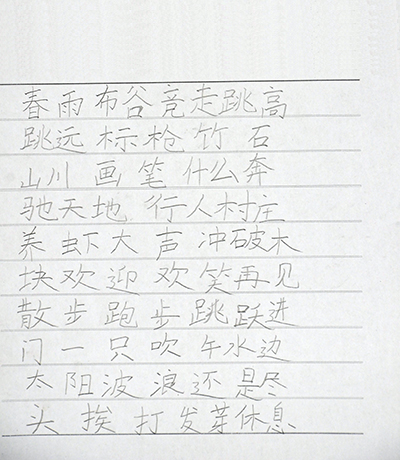 春雨布谷竞走跳高
跳远标枪竹石
山川画笔什么奔
驰天地行人村庄
养虾大声冲破木
块欢迎欢笑再见
散步跑步跳跃进
门一只吹午水边
太阳波浪还是尽
头挨打发芽休息